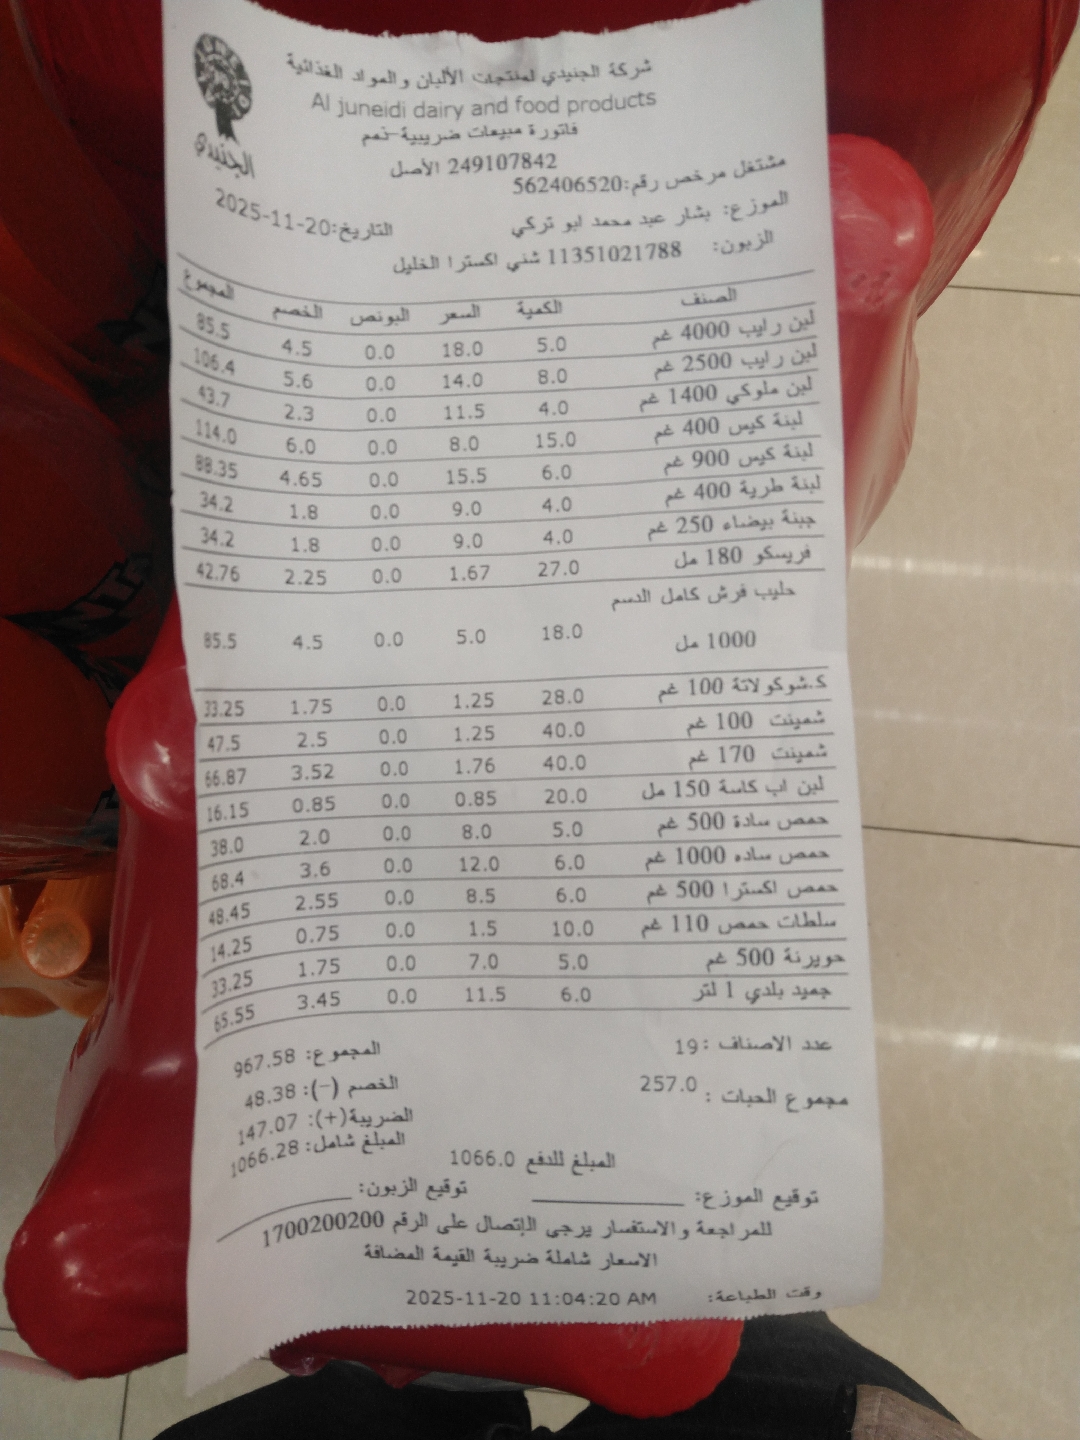 JUNEIDI
الجنيدي
شركة الجنيدي لمنتجات الألبان والمواد الغذائية
Al juneidi dairy and food products
فاتورة مبيعات ضريبية-ذمم
249107842 الأصل
مشتغل مرخص رقم:562406520
الموزع: بشار عبد محمد ابو تركي التاريخ:2025-11-20
الزبون: 11351021788 شني اكسترا الخليل
الصنف الكمية السعر البونص الخصم المجموع
لبن رايب 4000 غم 5.0 18.0 0.0 4.5 85.5
لبن رايب 2500 غم 8.0 14.0 0.0 5.6 106.4
لبن ملوكي 1400 غم 4.0 11.5 0.0 2.3 43.7
لبنة كيس 400 غم 15.0 8.0 0.0 6.0 114.0
لبنة كيس 900 غم 6.0 15.5 0.0 4.65 88.35
لبنة طرية 400 غم 4.0 9.0 0.0 1.8 34.2
جبنة بيضاء 250 غم 4.0 9.0 0.0 1.8 34.2
فريسكو 180 مل 27.0 1.67 0.0 2.25 42.76
حليب فرش كامل الدسم
1000 مل 18.0 5.0 0.0 4.5 85.5
ك.شوكولاتة 100 غم 28.0 1.25 0.0 1.75 33.25
شمينت 100 غم 40.0 1.25 0.0 2.5 47.5
شمينت 170 غم 40.0 1.76 0.0 3.52 66.87
لبن اب كاسة 150 مل 20.0 0.85 0.0 0.85 16.15
حمص سادة 500 غم 5.0 8.0 0.0 2.0 38.0
حمص ساده 1000 غم 6.0 12.0 0.0 3.6 68.4
حمص اكسترا 500 غم 6.0 8.5 0.0 2.55 48.45
سلطات حمص 110 غم 10.0 1.5 0.0 0.75 14.25
حويرنة 500 غم 5.0 7.0 0.0 1.75 33.25
جميد بلدي 1 لتر 6.0 11.5 0.0 3.45 65.55
عدد الاصناف :19 المجموع: 967.58
مجموع الحبات : 257.0 الخصم (-): 48.38
الضريبة(+): 147.07
المبلغ شامل: 1066.28
المبلغ للدفع 1066.0
توقيع الموزع: توقيع الزبون:
للمراجعة والاستفسار يرجى الإتصال على الرقم 1700200200
الاسعار شاملة ضريبة القيمة المضافة
وقت الطباعة: 2025-11-20 11:04:20 AM